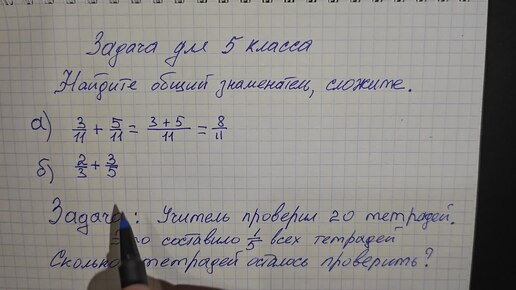 Задача для 5 класса
Найдите общий знаменатель, сложите.
а) 3/11 + 5/11 = (3+5)/11 = 8/11
б) 2/3 + 3/5
Задача: Учитель проверил 20 тетрадей.
составило 1/5 всех тетрадей
Сколько тетрадей осталось проверить?